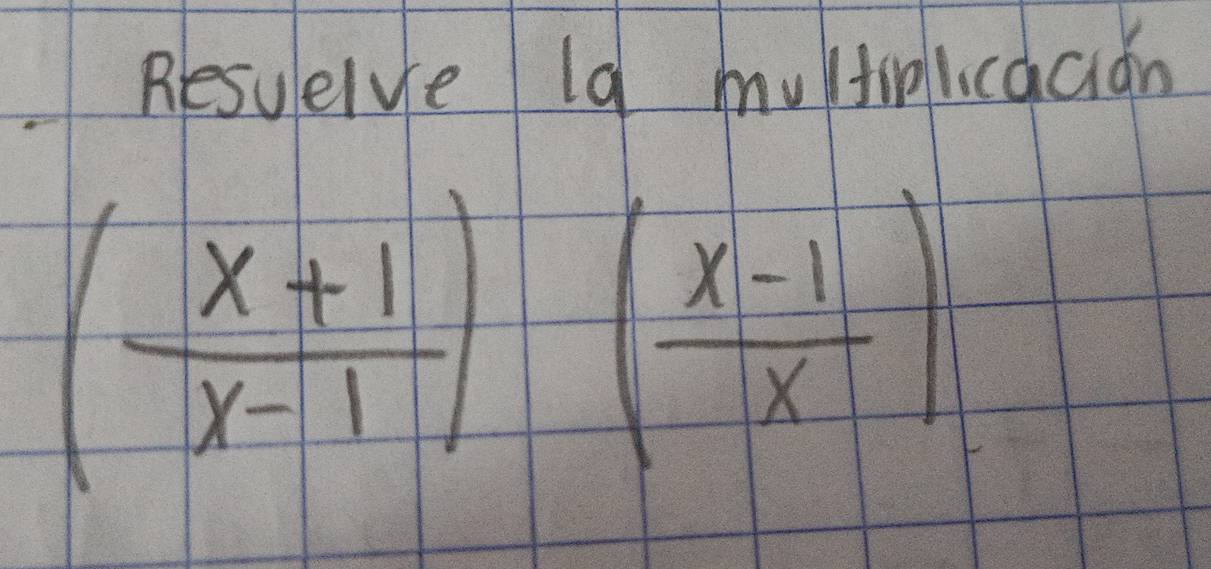 Resuelve la multiplicación
( x + 1 / x - 1 ) ( x - 1 / x )